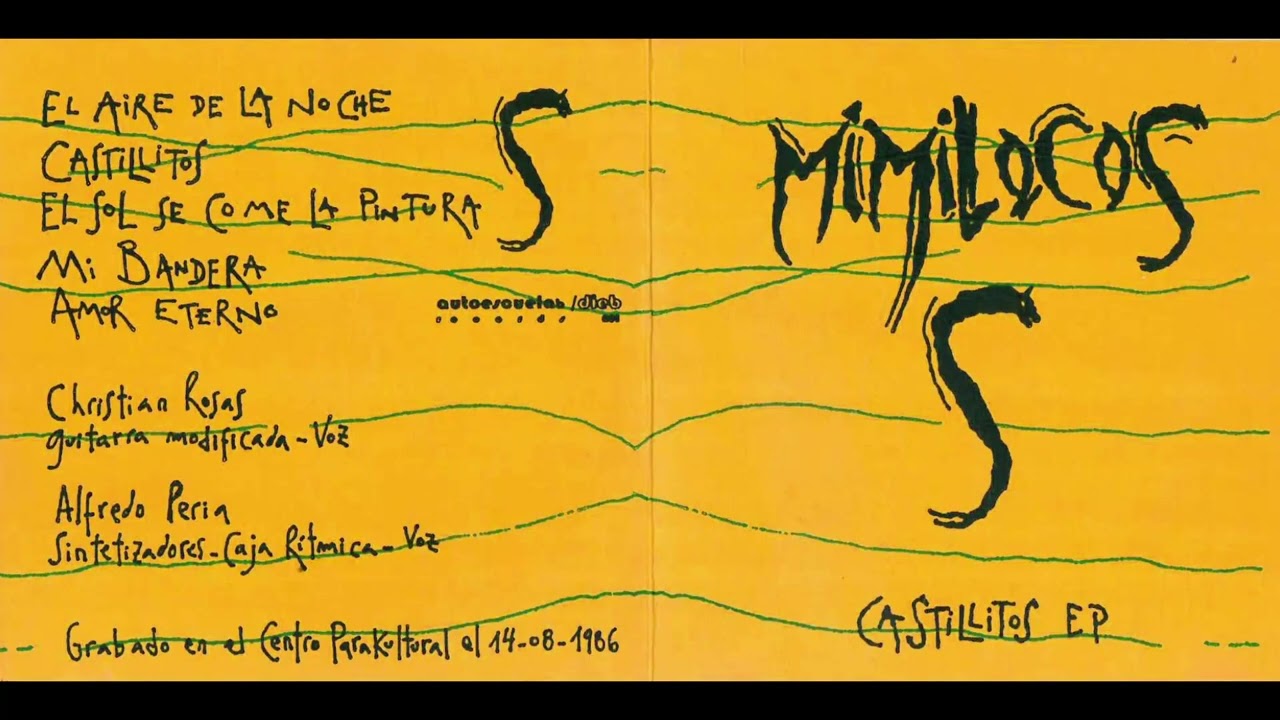 EL AiRE DE LA NOCHE
CASTiLLiTOS
EL SOL SE COME LA PiNTURA
Mi BANDERA
AMOR ETERNO
autoescuelas/djeb
records
Christian Rosas
guitarra modificada - Voz
Alfredo Peria
Sintetizadores - Caja Rítmica - Voz
Grabado en el Centro ParaKultural el 14-08-1986
MiMiLOCOS
CASTiLLiTOS EP